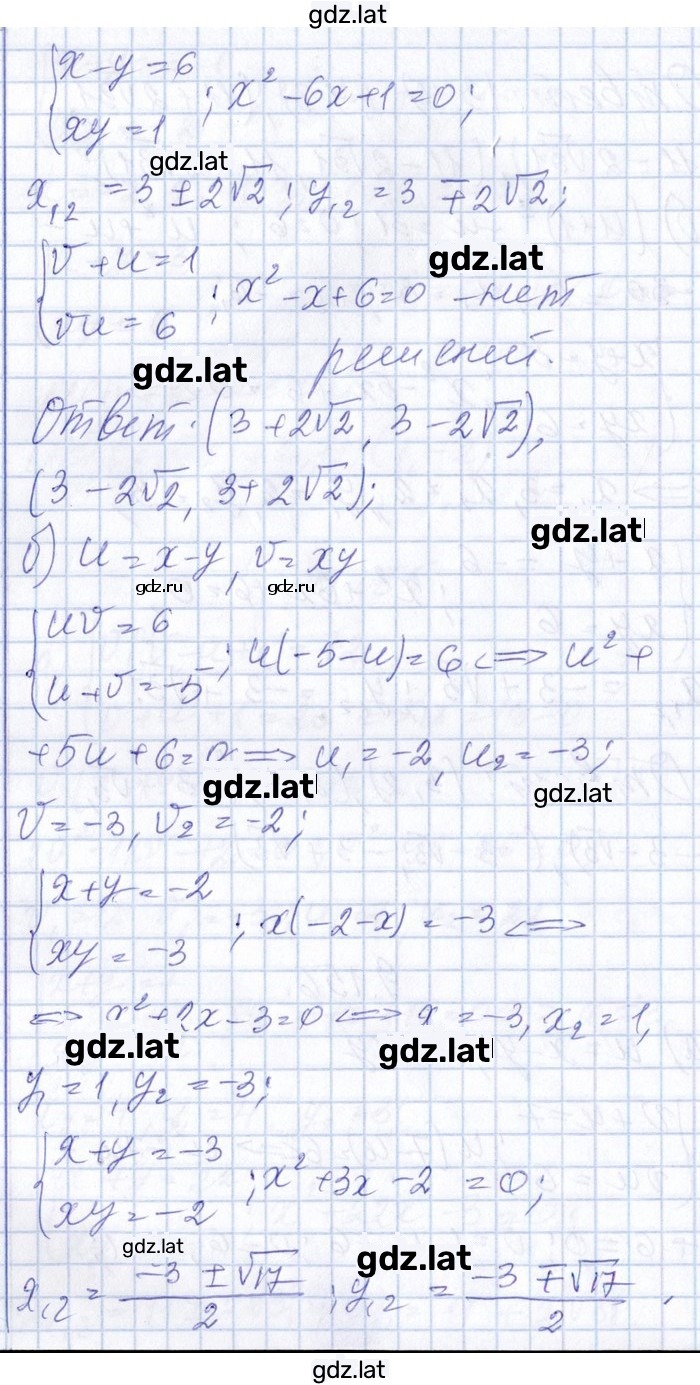 gdz.lat
{x-y=6
xy=1 ; x²-6x+1=0;
gdz.lat
x₁,₂ = 3 ± 2√2 ; y₁,₂ = 3 ∓ 2√2;
gdz.lat
{v+u=1
vu=6 ; x²-x+6=0 - нет
решений.
gdz.lat
Ответ: (3+2√2, 3-2√2),
(3-2√2, 3+2√2);
gdz.lat
б) u=x-y, v=xy
gdz.ru gdz.ru
{uv=6
u+v=-5 ; u(-5-u)=6 <=> u²+
+5u+6=0 => u₁=-2, u₂=-3;
gdz.lat gdz.lat
v=-3, v₂=-2;
{x+y=-2
xy=-3 ; x(-2-x)=-3 <=>
<=> x²+2x-3=0 <=> x=-3, x₂=1,
gdz.lat gdz.lat
y₁=1, y₂=-3;
{x+y=-3
xy=-2 ; x²+3x-2=0;
gdz.lat gdz.lat
x₁,₂ = (-3±√17)/2 ; y₁,₂ = (-3∓√17)/2 ,
gdz.lat